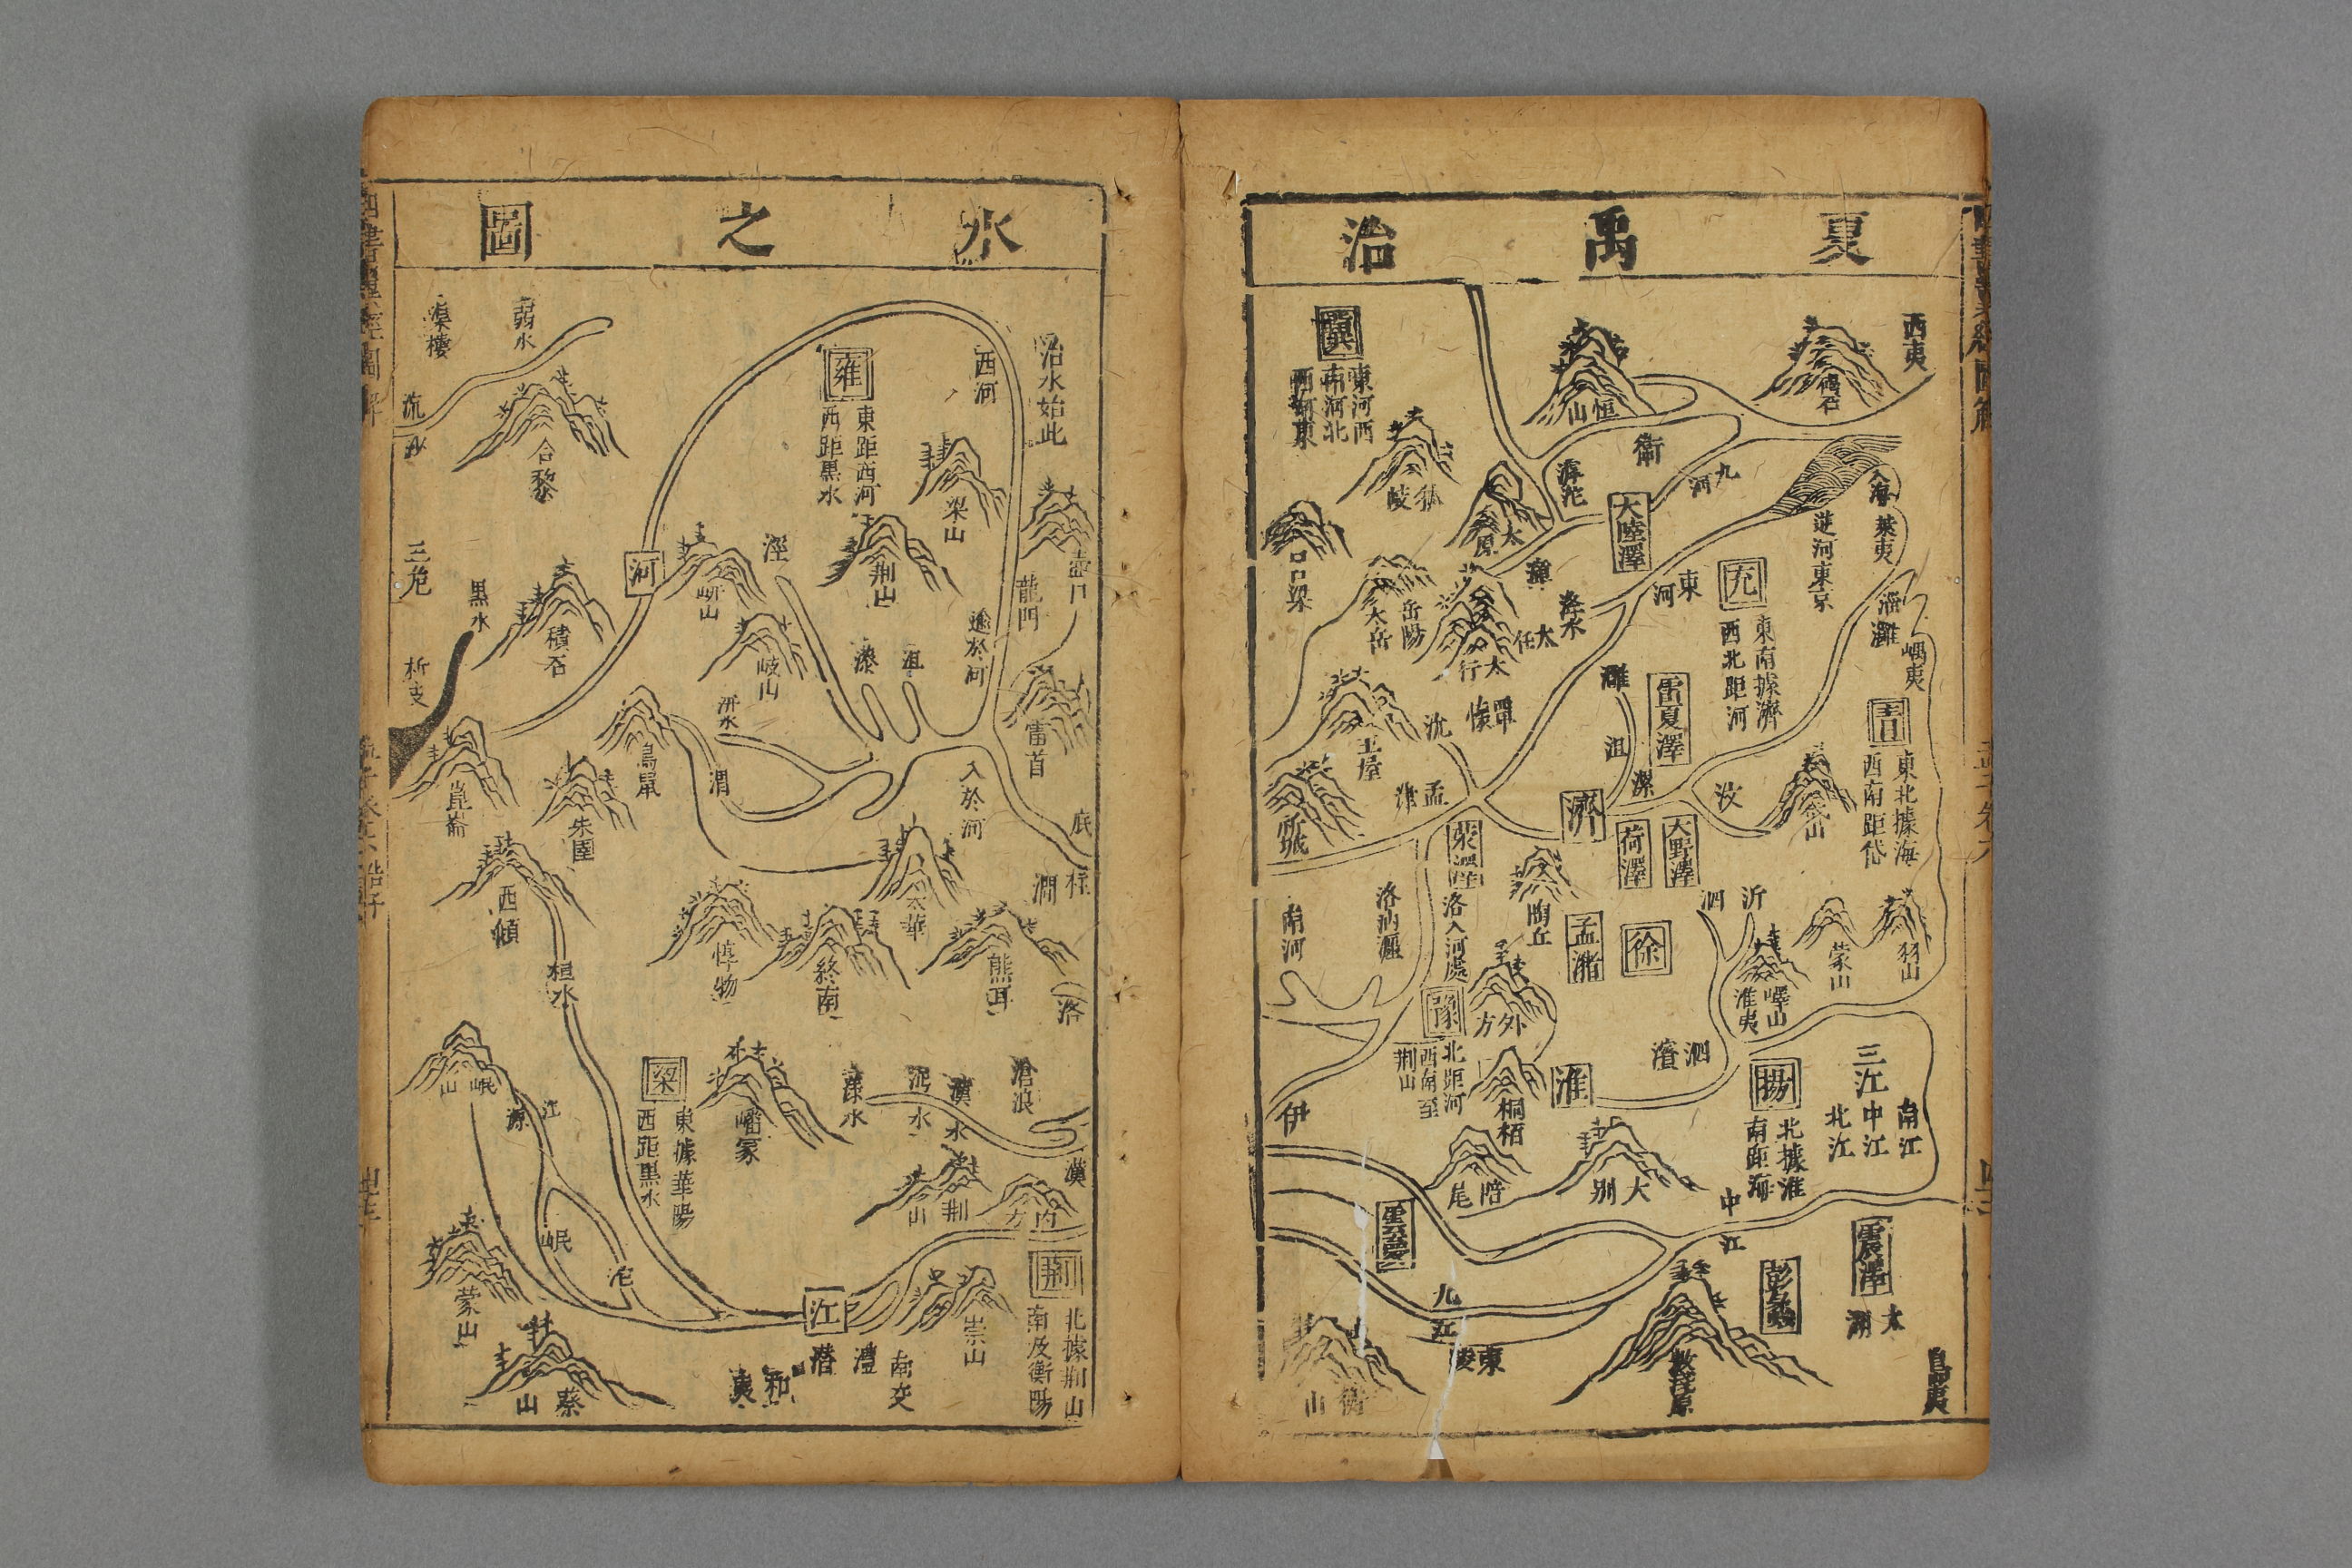 夏禹治
西夷
碣石
恒山
衛
九河
滹沱
大陸澤
入海
逆河東京
萊夷
冀
東河西
南河北
西河東
狐岐
太原
太岳
岳陽
太行
大伾
東河
兗
東南據濟
西北距河
濰
嵎夷
青
東北據海
西南距岱
雷夏澤
灉
沮
漯
汶
岱山
覃懷
沇
王屋
孟津
析城
濟
滎澤
荷澤
大野澤
南河
洛汭
洛入河處
陶丘
孟瀦
徐
泗
沂
嶧山
淮夷
蒙山
羽山
豫
北距河
西南至
荆山
外方
桐栢
伊
淮
泗濱
揚
北據淮
南距海
三江
南江
中江
北江
陪尾
大別
中江
九江
東陵
衡山
敷淺原
彭蠡
震澤
太湖
島夷
水之圖
治水始此
西河
壺口
龍門
雍
東距西河
西距黒水
梁山
荆山
弱水
渠搜
流沙
合黎
河
岍山
涇
岐山
漆
沮
逾於河
雷首
三危
黒水
積石
析支
崑崙
鳥鼠
朱圉
渭
汧水
入於河
底柱
澗
西傾
桓水
惇物
終南
太華
熊耳
洛
岷山
江源
梁
東據華陽
西距黒水
嶓冢
漾水
沔水
漢水
滄浪
漢
荆山
內方
岷
沱
蒙山
蔡山
江
和夷
潛
澧
南交
崇山
荆
北據荆山
南及衡陽